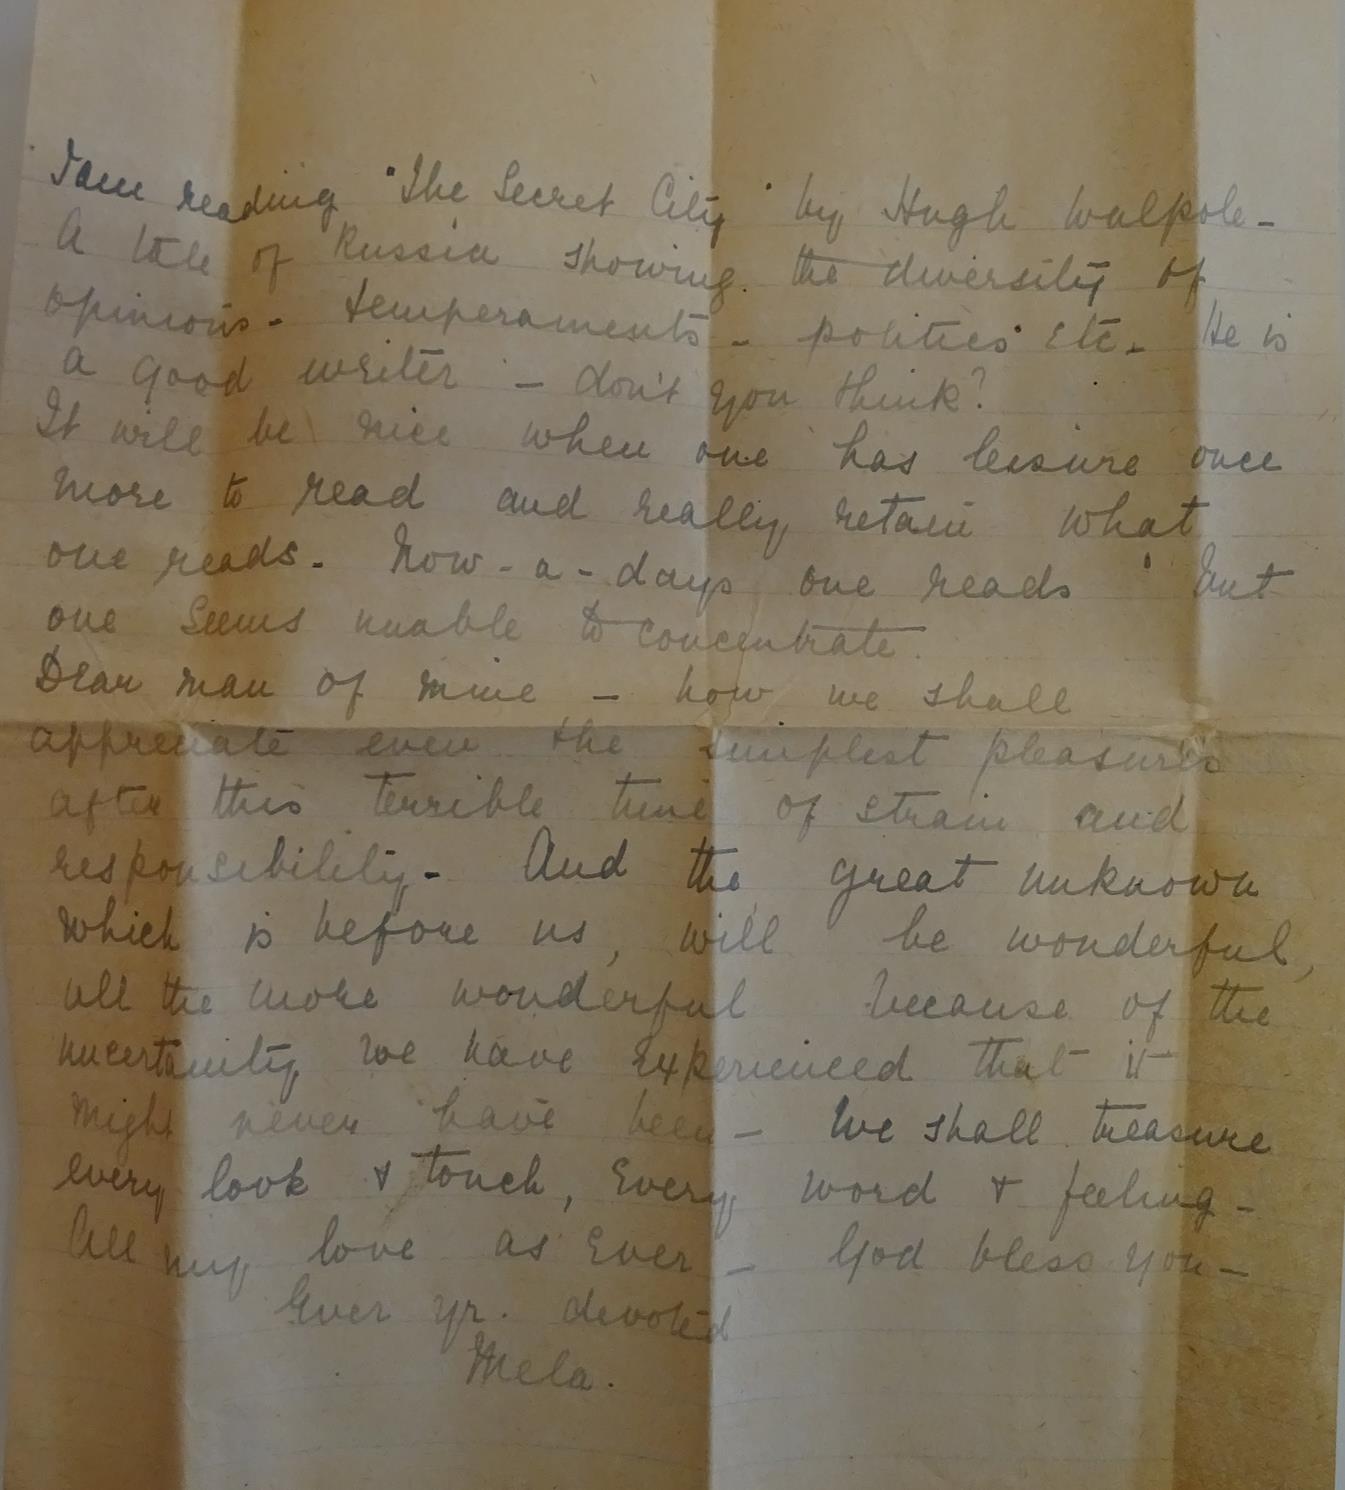 I am reading "The Secret City" by Hugh Walpole -
A tale of Russia showing the diversity of
opinions - temperaments - politics etc - He is
a good writer - don't you think?
It will be nice when one has leisure once
more to read and really retain what
one reads - Now-a-days one reads but
one seems unable to concentrate.
Dear man of mine - how we shall
appreciate even the simplest pleasures
after this terrible time of strain and
responsibility - And the great unknown
which is before us, will be wonderful,
all the more wonderful because of the
uncertainity we have experienced that it
might never have been - We shall treasure
every look & touch, every word & feeling -
All my love as Ever - God bless you -
Ever yr. devoted
Mela.